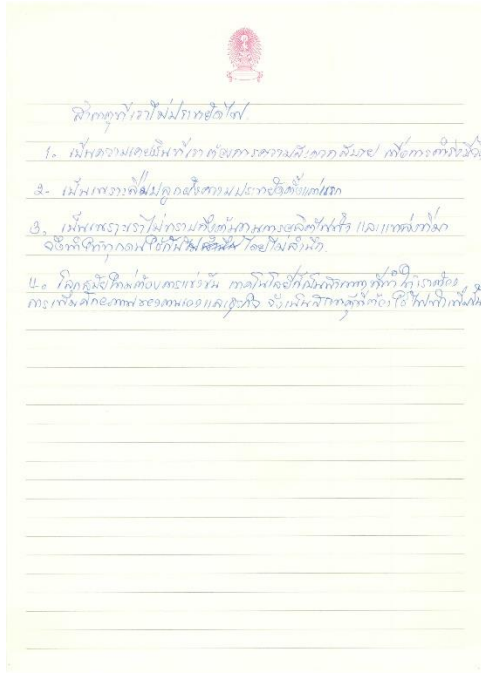 สาเหตุที่เราไม่ประหยัดไฟ
1. เป็นความเคยชินที่เราต้องการความสะดวกสบาย เพื่อการดำรงชีวิ
2. เป็นเพราะไม่ปลูกฝังความประหยัดตั้งแต่แรก
3. เป็นเพราะเราไม่ทราบถึงต้นทุนการผลิตไฟฟ้า และแหล่งที่มา
จึงทำให้ทุกคนใช้กันโดยไม่สำนึก.
4. โลกสมัยใหม่ต้องการแข่งขัน เทคโนโลยีจึงเป็นสาเหตุที่ทำให้เราต้อง
การเพิ่มศักยภาพของตนเองและธุรกิจ จึงเป็นสาเหตุที่ต้องใช้ไฟฟ้าเพิ่มขึ้น